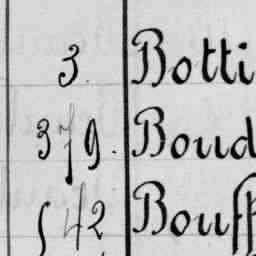 3. Botti
379. Boud
542 Bouff